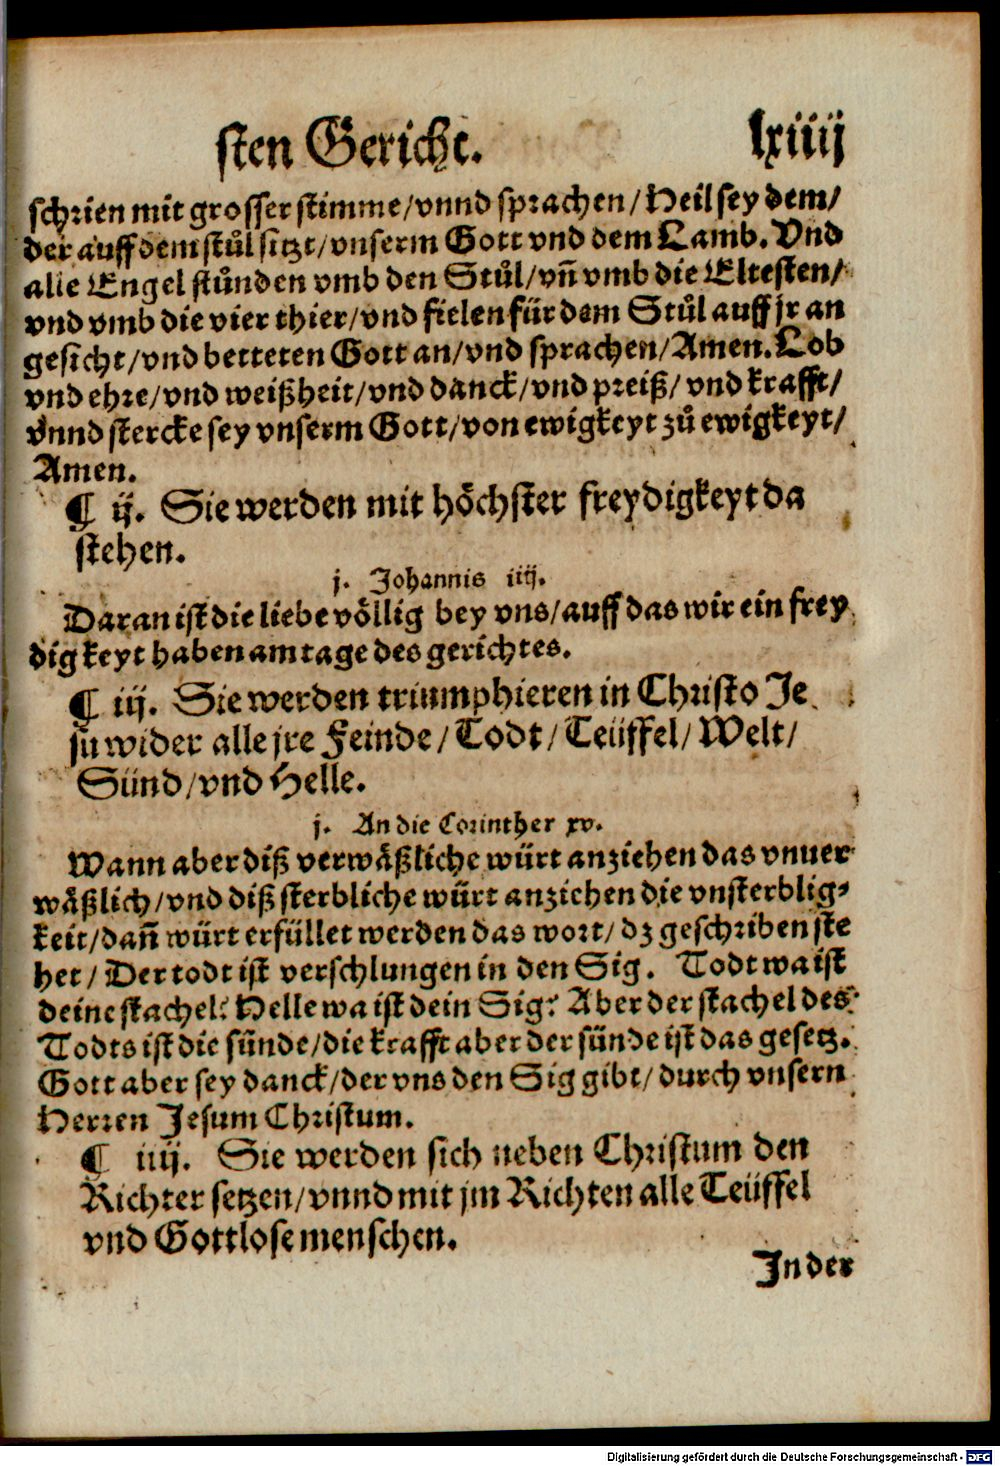 sten Gericht. lxiiij
schrien mit grosser stimme/vnnd sprachen/Heil sey dem/
der auff dem stůl sitzt/vnserm Gott vnd dem Lamb. Vnd
alle Engel stůnden vmb den Stůl/vñ vmb die Eltesten/
vnd vmb die vier thier/vnd fielen für dem Stůl auff jr an
gesicht/vnd betteten Gott an/vnd sprachen/Amen. Lob
vnd ehre/vnd weißheit/vnd danck/vnd preiß/vnd krafft/
vnnd stercke sey vnserm Gott/von ewigkeyt zů ewigkeyt/
Amen.
¶ ij. Sie werden mit höchster freydigkeyt da
stehen.
j. Johannis iiij.
Daran ist die liebe völlig bey vns/auff das wir ein frey
digkeyt haben am tage des gerichtes.
¶ iij. Sie werden triumphieren in Christo Je
su wider alle jre Feinde/Todt/Teüffel/Welt/
Sünd/vnd Helle.
j. An die Corinther xv.
Wann aber diß verwäßliche würt anziehen das vnuer
wäßlich/vnd diß sterbliche würt anziehen die vnsterblig-
keit/dañ würt erfüllet werden das wort/dz geschriben ste
het/Der todt ist verschlungen in den Sig. Todt wa ist
deine stachel? Helle wa ist dein Sig? Aber der stachel des
Todts ist die sünde/die krafft aber der sünde ist das gesetz.
Gott aber sey danck/der vns den Sig gibt/durch vnsern
Herren Jesum Christum.
¶ iiij. Sie werden sich neben Christum den
Richter setzen/vnnd mit jm Richten alle Teüffel
vnd Gottlose menschen.
In der
Digitalisierung gefördert durch die Deutsche Forschungsgemeinschaft - DFG